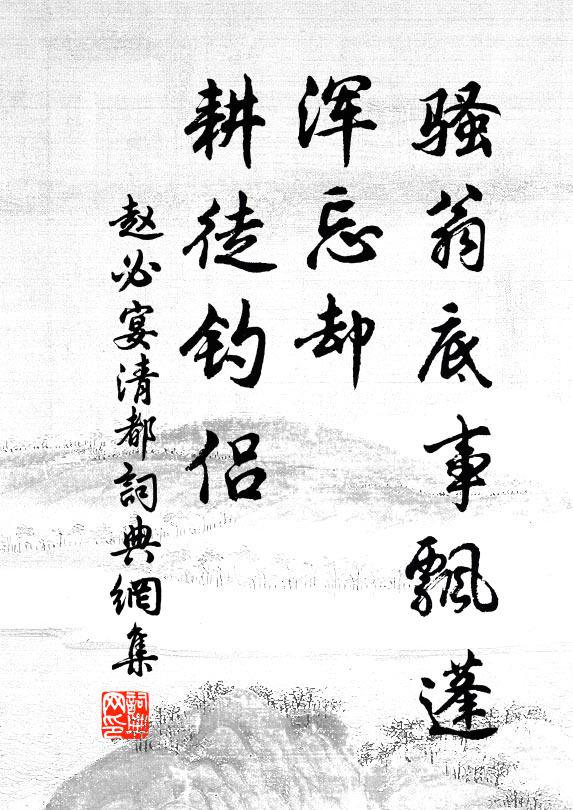 骚翁底事飘蓬
浑忘却
耕徒钓侣
赵必宴清都詞典網集
詞典网印